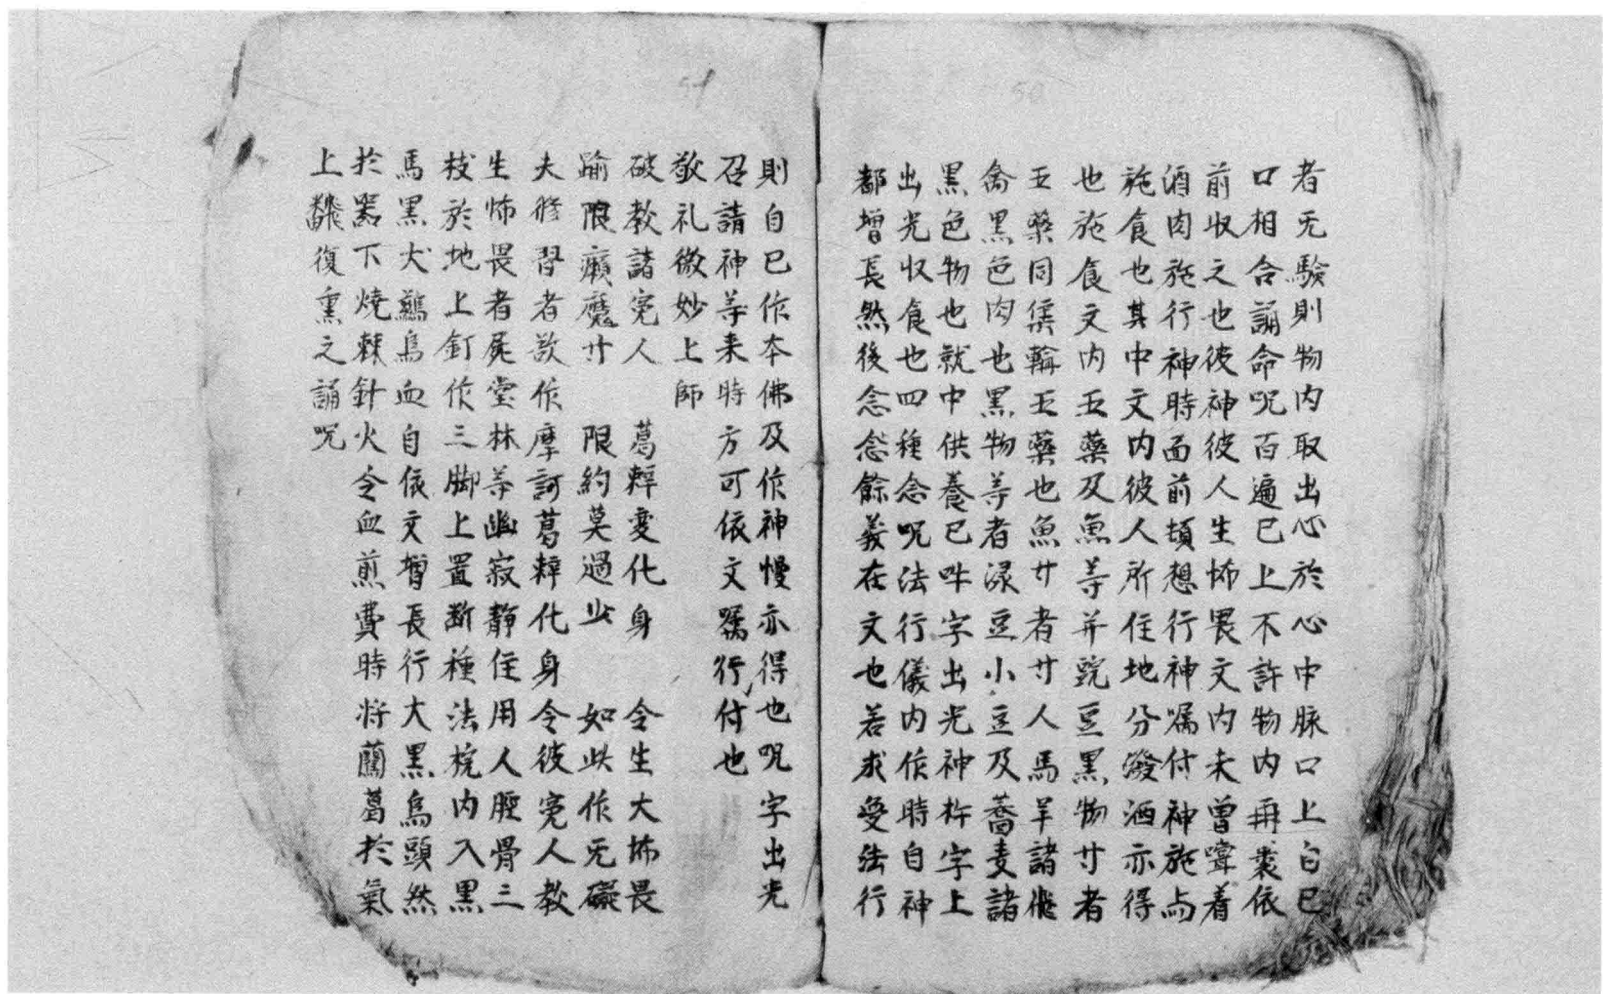 者无驗則物内取出心於心中脉口上自已
口相合誦命呪百遍已上不許物内再裹依
前収之也彼神彼人生怖畏文内未曾㝉着
酒肉施行神時面前頂想行神嘱付神施与
施食也其中文内彼人所住地分潑酒亦得
也施食文内五藥及魚等并豌豆黑物廿者
五藥同集輪五藥也魚廿者廿人馬羊諸飛
禽黑色肉也黑物等者渌豆小豆及蕎麦諸
黑色物也就中供養已吽字出光神杵字上
出光収食也四種念呪法行儀内作時自神
都增長然後念念餘義在文也若求受法行
則自已作本佛及作神慢亦得也呪字出光
召請神等来時方可依文嘱行付也
敬礼微妙上師
破教諸寃人 葛辢变化身 令生大怖畏
踰限癩魔廿 限約莫過此 如此作无礙
夫修習者欲作摩訶葛辢化身令彼寃人教
生怖畏者屍堂林等幽寂靜住用人脛骨三
枝於地上釘作三脚上置断種法梡内入黑
馬黑犬鷂烏血自依文增長行大黑烏頭然
於器下燒棘針火令血煎費時将藺葛於氣
上復熏之誦呪